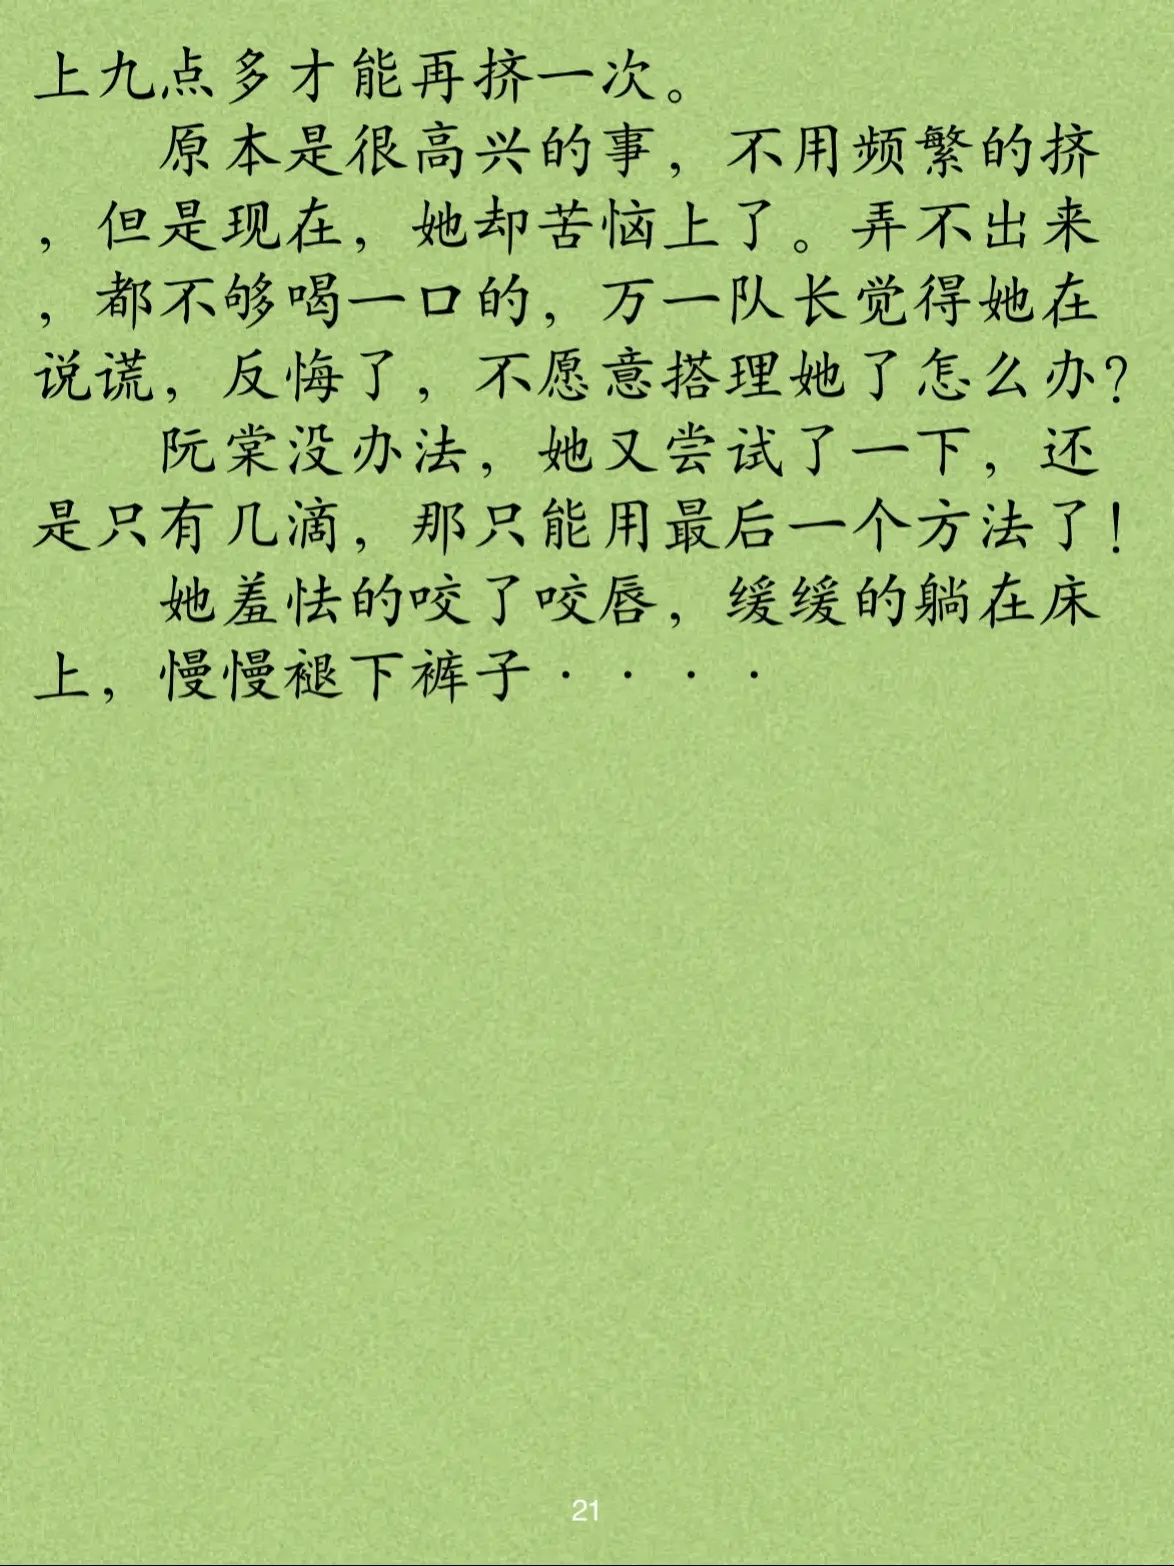 上九点多才能再挤一次。
原本是很高兴的事，不用频繁的挤
，但是现在，她却苦恼上了。弄不出来
，都不够喝一口的，万一队长觉得她在
说谎，反悔了，不愿意搭理她了怎么办？
阮棠没办法，她又尝试了一下，还
是只有几滴，那只能用最后一个方法了！
她羞怯的咬了咬唇，缓缓的躺在床
上，慢慢褪下裤子····
21